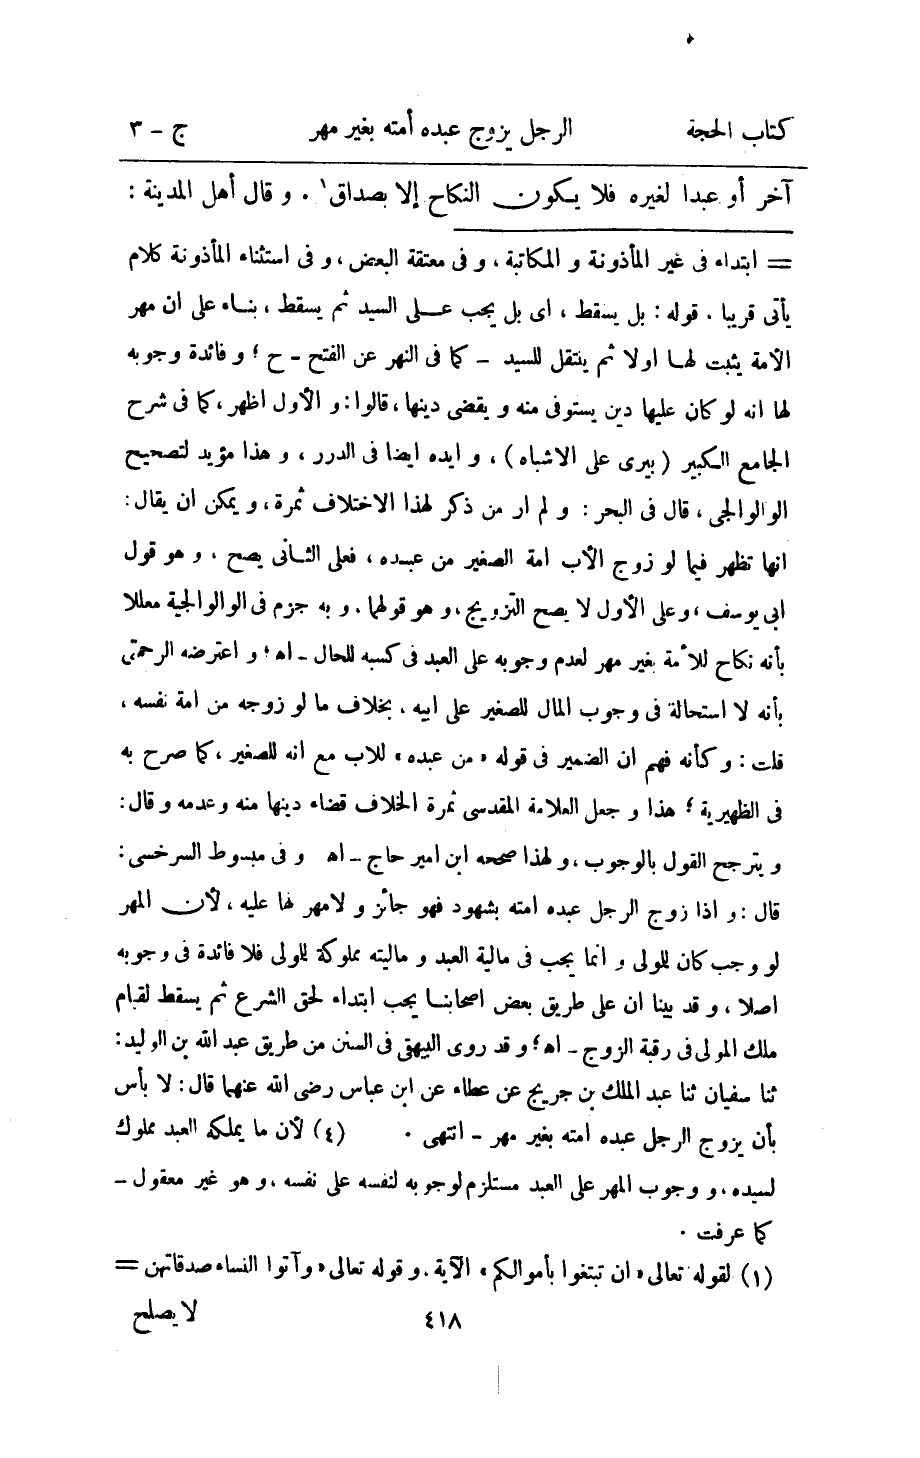 كتاب الحجة الرجل يزوج عبده أمته بغير مهر ج - ٣
آخر أو عبدا لغيره فلا يكون النكاح إلا بصداق١ . و قال أهل المدينة :
= ابتداء فى غير المأذونة و المكاتبة ، و فى معتقة البعض ، و فى استثناء المأذونة كلام
يأتى قريبا . قوله : بل يسقط ، اى بل يجب على السيد ثم يسقط ، بناء على ان مهر
الأمة يثبت لها اولا ثم ينتقل للسيد - كما فى النهر عن الفتح - ح ؛ و فائدة وجوبه
لها انه لو كان عليها دين يستوفى منه و يقضى دينها ، قالوا : و الأول اظهر ، كما فى شرح
الجامع الكبير ( بيرى على الاشباه ) ، و ايده ايضا فى الدرر ، و هذا مؤيد لتصحيح
الوالوالجى ، قال فى البحر : و لم ار من ذكر لهذا الاختلاف ثمرة ، و يمكن ان يقال :
انها تظهر فيما لو زوج الأب امة الصغير من عبده ، فعلى الثانى يصح ، و هو قول
ابى يوسف ، و على الأول لا يصح التزويج ، و هو قولهما . و به جزم فى الوالوالجية معللا
بأنه نكاح للأمة بغير مهر لعدم وجوبه على العبد فى كسبه للحال - اه ؛ و اعترضه الرحمتى
بأنه لا استحالة فى وجوب المال للصغير على ابيه . بخلاف ما لو زوجه من امة نفسه ،
قلت : و كأنه فهم ان الضمير فى قوله « من عبده » للاب مع انه للصغير ، كما صرح به
فى الظهيرية ؛ هذا و جعل العلامة المقدسى ثمرة الخلاف قضاء دينها منه و عدمه و قال :
و يترجح القول بالوجوب ، و لهذا صححه ابن امير حاج - اه و فى مبسوط السرخسى :
قال : و اذا زوج الرجل عبده امته بشهود فهو جائز و لا مهر لها عليه ، لأن المهر
لو وجب كان للولى و انما يجب فى مالية العبد و ماليته مملوكة للولى فلا فائدة فى وجوبه
اصلا ، و قد بينا ان على طريق بعض اصحابنا يجب ابتداء لحق الشرع ثم يسقط لقيام
ملك المولى فى رقبة الزوج - اه ؛ و قد روى البيهقى فى السنن من طريق عبد الله بن الوليد :
ثنا سفيان ثنا عبد الملك بن جريج عن عطاء عن ابن عباس رضى الله عنهما قال : لا بأس
بأن يزوج الرجل عبده امته بغير مهر - انتهى . (٤) لأن ما يملكه العبد مملوك
لسيده ، و وجوب المهر على العبد مستلزم لوجوبه لنفسه على نفسه ، و هو غير معقول -
كما عرفت .
(١) لقوله تعالى « ان تبتغوا بأموالكم » الآية . و قوله تعالى « وآتوا النساء صدقاتهن =
٤١٨ لا يصلح